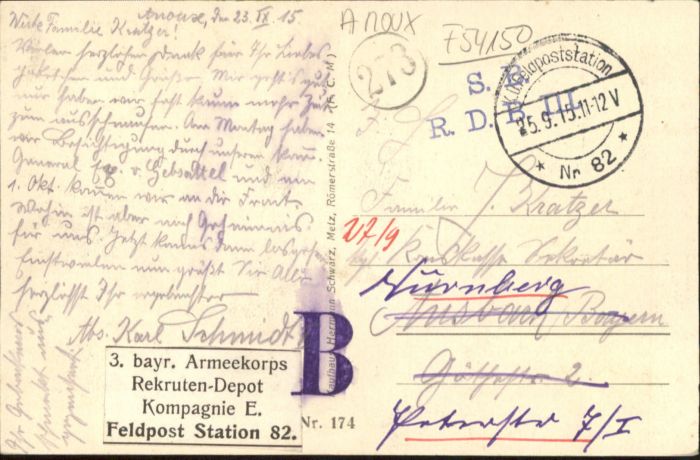 Anoux, den 23. IX. 15.
Werte Familie Kratzer!
Vielen herzlichen Dank für Ihr liebes
und Grüße. Mir geht's gut
nur haben wir fast kaum mehr Zeit
zum Am Montag haben
wir Besichtigung durch unseren
General v. Gebsattel und am
1. Okt. kommen wir an die Front
Wohin ist aber noch Geheimnis
für uns. Jetzt kann's dann losgehen
Einstweilen nun grüßt Sie alle
herzlichst Ihr ergebenster
Abs. Karl Schmidt
3. bayr. Armeekorps
Rekruten-Depot
Kompagnie E.
Feldpost Station 82.
Kaufhaus Hermann Schwarz, Metz, Römerstraße 14 (H. C. M)
Nr. 174
B
Anoux
F54150
273
S. B.
R. D. B. III
Feldpoststation
25.9.15.11-12V
* Nr 82 *
Familie J. Kratzer
27/9
Sekretär
Nürnberg
Ansbach Bayern
2
Peterstr 7/I